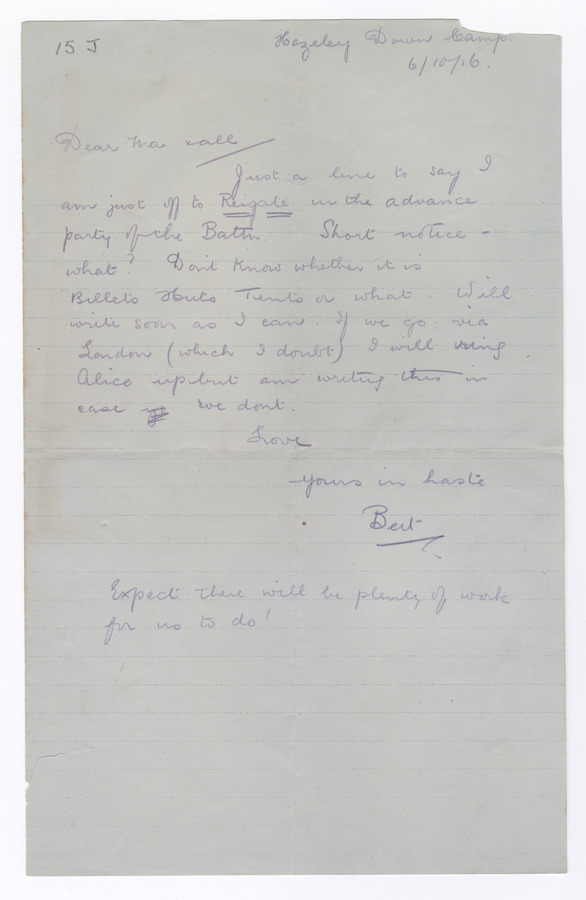 15 J
Hazeley Down Camp.
6/10/16.
Dear Ma & all
Just a line to say I
am just off to Reigate in the advance
party of the Battn. Short notice -
what? Dont Know whether it is
Billets Huts Tents or what. Will
write soon as I can. If we go via
London (which I doubt) I will ring
Alice up but am writing this in
case we dont.
Love
yours in haste
Bert
Expect there will be plenty of work
for us to do!